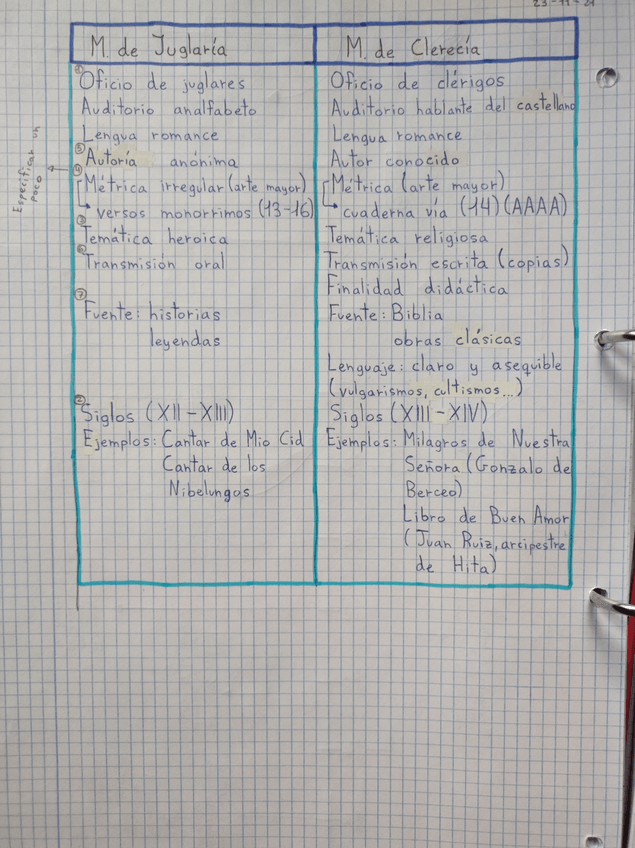 23-11-21
M. de Juglaría
M. de Clerecía
① Oficio de juglares
Auditorio analfabeto
Lengua romance
⑤ Autoría anónima
④ Métrica irregular (arte mayor)
↳ versos monorrimos (13-16)
③ Temática heroica
⑥ Transmisión oral
⑦ Fuente: historias
leyendas
② Siglos (XII-XIII)
Ejemplos: Cantar de Mio Cid
Cantar de los
Nibelungos
Especificar un
poco
Oficio de clérigos
Auditorio hablante del castellano
Lengua romance
Autor conocido
Métrica (arte mayor)
↳ cuaderna vía (14) (AAAA)
Temática religiosa
Transmisión escrita (copias)
Finalidad didáctica
Fuente: Biblia
obras clásicas
Lenguaje: claro y asequible
(vulgarismos, cultismos...)
Siglos (XIII-XIV)
Ejemplos: Milagros de Nuestra
Señora (Gonzalo de
Berceo)
Libro de Buen Amor
(Juan Ruiz, arcipestre
de Hita)